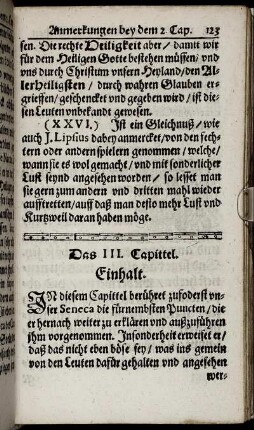 Anmerkungen bey dem 2. Cap. 123
sen. Die rechte Heiligkeit aber / damit wir
für dem Heiligen Gotte bestehen müssen / vnd
vns durch Christum vnsern Heyland / den Al-
lerHeiligsten / durch wahren Glauben er-
griessen / geschencket vnd gegeben wird / ist die-
sen Leuten vnbekandt gewesen.
(XXVI.) Ist ein Gleichnuß / wie
auch J. Lipsius dabey anmercket / von den fech-
tern oder andern spielern genommen / welche /
wann sie es wol gemacht / vnd mit sonderlicher
Lust seynd angesehen worden / so lesset man
sie gern zum andern vnd dritten mahl wieder
aufftretten / auff daß man desto mehr Lust vnd
Kurtzweil daran haben möge.
Das III. Capittel.
Einhalt.
IN diesem Capittel berühret zuforderst vn-
ser Seneca die fürnembsten Puncten / die
er hernach weiter zu erklären vnd außzuführen
jhm vorgenommen. Insonderheit erweiset er /
daß das nicht eben böse sey / was ins gemein
von den Leuten dafür gehalten vnd angesehen
wer-